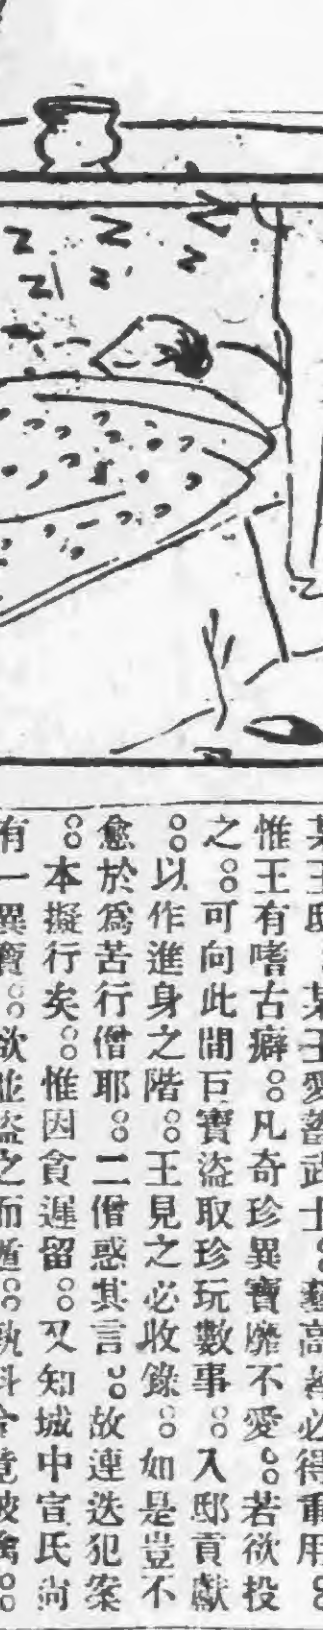 某王邸。某王愛蓄武士。藝高者必得重用。
惟王有嗜古癖。凡奇珍異寶靡不愛。若欲投
之。可向此間巨寶盜取珍玩數事。入邸貢獻
。以作進身之階。王見之必收錄。如是豈不
愈於爲苦行僧耶。二僧惑其言。故連迭犯案
。本擬行矣。惟因貪遲留。又知城中宣氏尚
有一異寶。欲並盜之而遁。孰料今竟被擒。